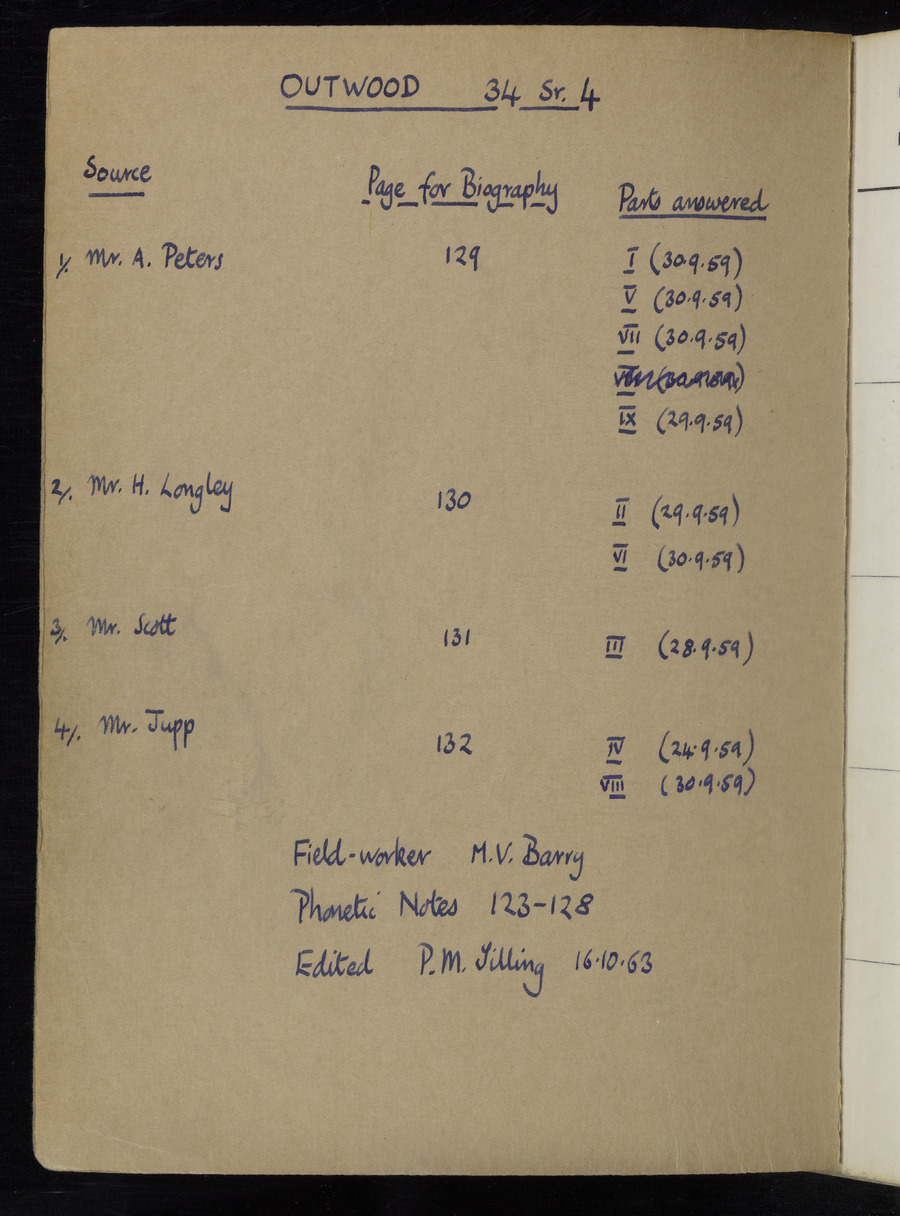 OUTWOOD 34 Sr. 4
Source Page for Biography Parts answered
1/. Mr. A. Peters 129 I (30.9.59)
V (30.9.59)
VII (30.9.59)
VIII (30.9.59)
IX (29.9.59)
2/. Mr. H. Longley 130 II (29.9.59)
VI (30.9.59)
3/. Mr. Scott 131 III (28.9.59)
4/. Mr. Jupp 132 IV (24.9.59)
VIII (30.9.59)
Field-worker M.V. Barry
Phonetic Notes 123-128
Edited P.M. Tilling 16.10.63